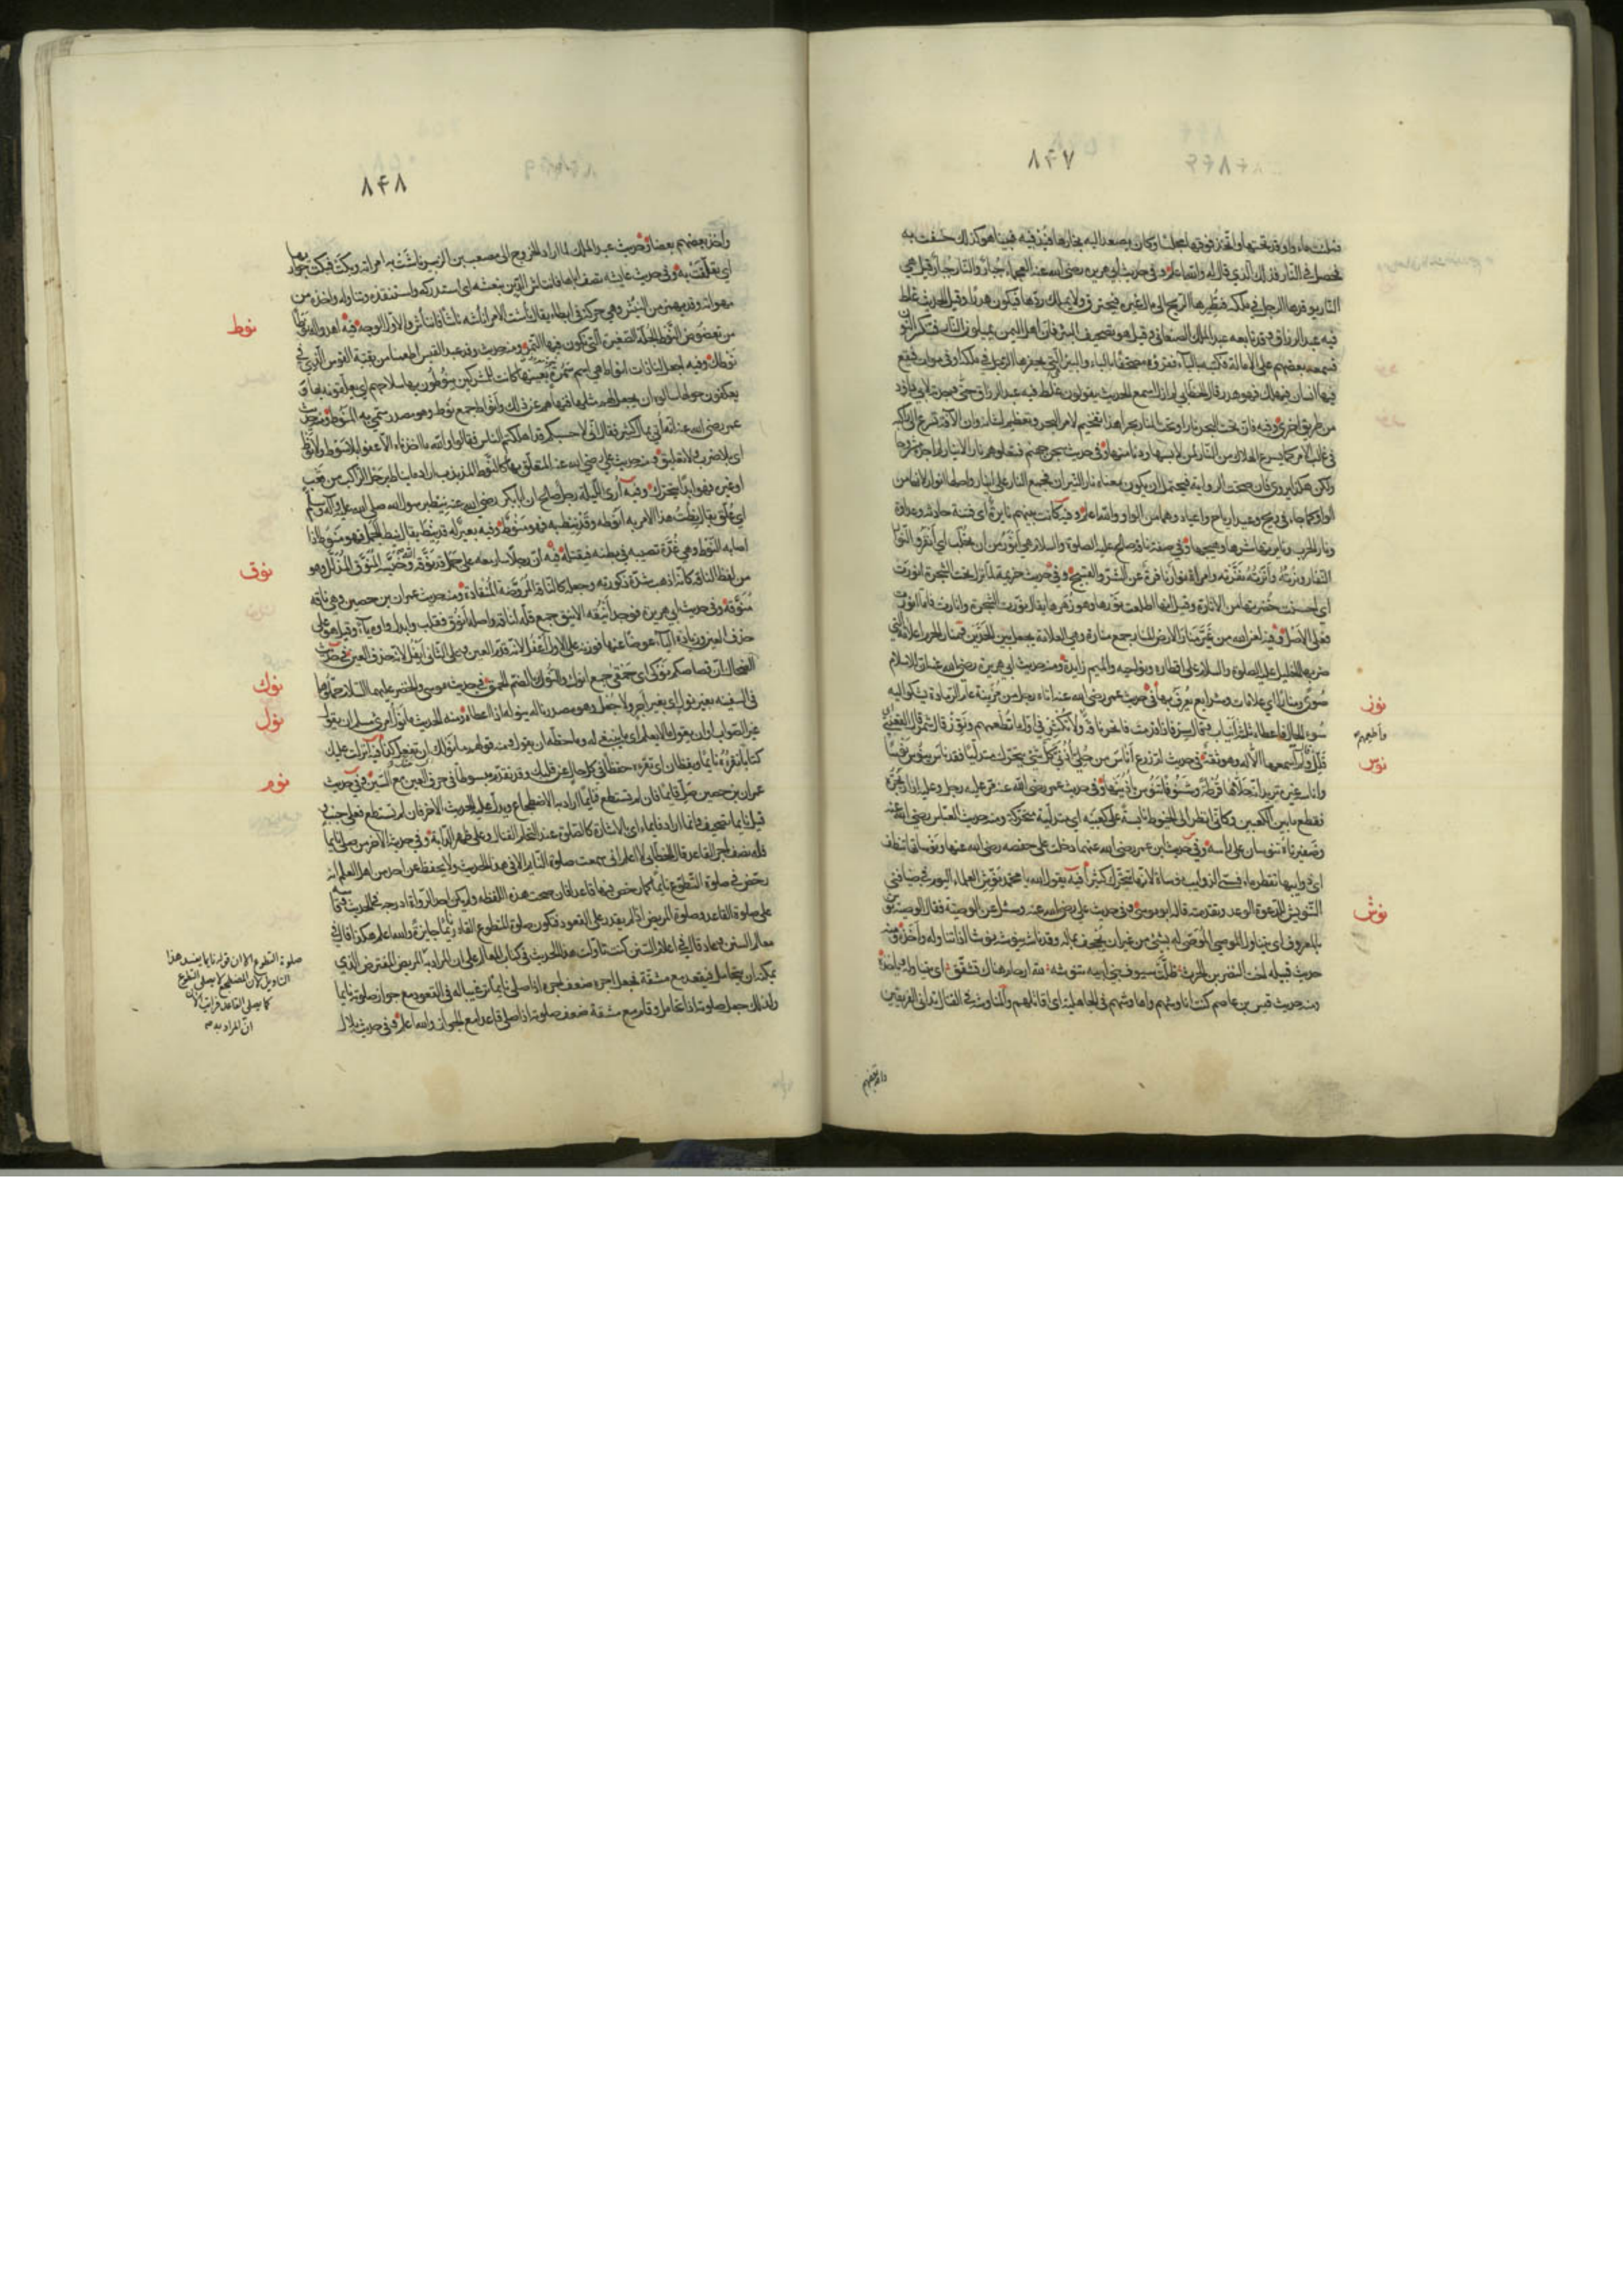 ٨٤٧
فملئت ماء واوقد تحتها واتخذ فوقها مجلسا وكان يصعد اليه بخارها فيدفيه فبينا هو كذلك خسفت به
فحصل في النار فذلك الذي قال له والله اعلم وفي حديث ابي هريرة رضي الله عنه العجماء جبار والنار جبار قيل هي
النار يوقدها الرجل في ملكه فتطيرها الريح الى مال غيره فيحترق ولا يملك ردها فيكون هدرا وقيل الحديث غلط
فيه عبد الرزاق وقد تابعه عبد الملك الصنعاني وقيل هو تصحيف البئر فان اهل اليمن يميلون النار فتنكسر النون
فسمعه بعضهم على الامالة فكتبه بالياء فقرؤه مصحفا بالباء والبئر التي يحفرها الرجل في ملكه او في موات فيقع
فيها انسان فيهلك فهو هدر قال الخطابي لم ازل اسمع اصحاب الحديث يقولون غلط فيه عبد الرزاق حتى وجدته لابي داود
من طريق اخرى وفيه فان تحت البحر نارا وتحت النار بحرا هذا تفخيم لامر البحر وتعظيم لشأنه وان الآفة تسرع الى راكبه
في غالب الامر كما يسرع الهلاك من النار لمن لابسها ودنا منها وفي حديث سجن جهنم فتعلوهم نار الانيار لم اجده مشروحا
ولكن هكذا يروى فان صحت الرواية فيحتمل ان يكون معناه نار النيران فجمع النار على انيار واصلها انوار لانها من
الواو كما جاء في ريح وعيد ارياح واعياد وهما من الواو والله اعلم وفيه كانت بينهم نايرة اي فتنة حادثة وعداوة
ونار الحرب ونايرتها شرها وهيجها وفي صفة ناقة صالح عليه الصلوة والسلام هي انور من ان تحلب اي انفر والنوار
النفار ونرته وانرته نفرته وامراة نوار نافرة عن الشر والقبيح وفي حديث خزيمة لما نزل تحت الشجرة انورت
اي حسنت خضرتها من الانارة وقيل انها اطلعت نورها وهو زهرها يقال نورت الشجرة وانارت فاما انورت
فعلى الاصل وفيه لعن الله من غير منار الارض المنار جمع منارة وهي العلامة تجعل بين الحدين ومنار الحرم اعلامه التي
ضربها الخليل عليه الصلوة والسلام على اقطاره ونواحيه والميم زايدة ومنه حديث ابي هريرة رضي الله عنه ان للاسلام
صوى ومنارا اي علامات وشرايع يعرف بها في حديث عمر رضي الله عنه اتاه رجل من مزينة عام الرمادة يشكو اليه
نوز
سوء الحال فاعطاه ثلثة انياب وقال سر فاذا قدمت فانحر ناقة ولا تكثر في اول ما تطعمهم ونوز قال شمر قال القعنبي
قلل ولم اسمعها الا له وهو ثقة في حديث ام زرع اناس من حلي اذني كل شئ يتحرك متدليا فقد ناس ينوس نوسا
نوس
واناسه غيره تريد انه حلاها قرطة وشنوفا تنوس باذنيها وفي حديث عمر رضي الله عنه مر عليه رجل وعليه ازار يجره
فقطع ما بين الكعبين وكاني انظر الى الخيوط نايسة على كعبيه اي متدلية متحركة ومنه حديث العباس رضي الله عنه
وضفيرتاه تنوسان على راسه وفي حديث ابن عمر رضي الله عنهما دخلت على حفصة رضي الله عنها ونوساتها تنطف
اي ذوايبها تقطر ماء فسمى الذوايب نوسات لانها تتحرك كثيرا فيه يقول الله يا محمد نوش العلماء اليوم في ضيافتي
التنويش للدعوة الوعد وتقدمته قاله ابو موسى وفي حديث علي رضي الله عنه وسئل عن الوصية فقال الوصية نوش
نوش
بالمعروف اي يتناول الموصي الموصى له بشئ من غير ان يجحف بماله وقد ناشه ينوشه نوشا اذا تناوله واخذه ومنه
حديث قتيلة اخت النضر بن الحرث ظلت سيوف بني ابيه تنوشه لله ارحام هناك تشقق اي تتناوله وتاخذه
ومنه حديث قيس بن عاصم كنت اناوشهم واهاوشهم في الجاهلية اي اقاتلهم والمناوشة في القتال تداني الفريقين
واخذ بعضهم
٨٤٨
واخذ بعضهم بعضا وحديث عبد الملك لما اراد الخروج الى مصعب بن الزبير ناشت به امراته وبكت فبكت جواريها
اي تعلقت به وفي حديث عايشة تصف اباها فانتاش الدين بنعشه اي استدركه واستنقذه وتناوله واخذه من
مهواته وقد يهمز من النئش وهي حركة في ابطاء يقال نأشت الامر انأشه نأشا فانتأش والاول الوجه فيه اهدوا له نوطا
نوط
من تعضوض النوط الجلة الصغيرة التي تكون فيها التمر ومنه حديث وفد عبد القيس اطعمنا من بقية القوس الذي في
نوطك وفيه اجعل لنا ذات انواط هي اسم سمرة بعينها كانت للمشركين ينوطون بها سلاحهم اي يعلقونه بها و
يعكفون حولها فسالوه ان يجعل لهم مثلها فنهاهم عن ذلك وانواط جمع نوط وهو مصدر سمي به المنوط ومنه حديث
عمر رضي الله عنه انه اتي بمال كثير فقال اني لاحسبكم قد اهلكتم الناس فقالوا والله ما اخذناه الا عفوا بلا سوط ولا نوط
اي بلا ضرب ولا تعليق ومنه حديث علي رضي الله عنه المتعلق بها كالنوط المذبذب اراد ما يناط برحل الراكب من قعب
او غيره فهو ابدا يتحرك وفيه ارى الليلة رجل صالح ان ابا بكر رضي الله عنه نيط برسول الله صلى الله عليه وآله وسلم
اي علق يقال نطت هذا الامر به انوطه وقد نيط به فهو منوط وفيه بعير له قد نيط يقال نيط الجمل فهو منوط اذا
اصابه النوط وهي غدة تصيبه في بطنه فيقتله فيه ان رجلا سار معه على جمل قد نوقه وخيسه المنوق المذلل وهو
نوق
من لفظ الناقة كانه اذهب شدة ذكورته وجعله كالناقة المروضة المنقادة ومنه حديث عمران بن حصين وهي ناقة
منوقة وفي حديث ابي هريرة فوجد اينقه الاينق جمع قلة لناقة واصله انوق فقلب وابدل واوه ياء وقيل هو على
حذف العين وزيادة الياء عوضا عنها فوزنه على الاول اعفل لانه قدم العين وعلى الثاني ايفل لانه حذف العين في حديث
الضحاك ان قصاصكم نوكى اي حمقى جمع انوك والنوك بالضم الحمق في حديث موسى والخضر عليهما السلام حملوهما
نوك
في السفينة بغير نول اي بغير اجر ولا جعل وهو مصدر ناله ينوله اذا اعطاه ومنه الحديث ما نول امرئ مسلم ان يقول
نول
غير الصواب او ان يقول ما لا يعلم اي ما ينبغي له وما حظه ان يقول ومنه قولهم ما نولك ان تفعل كذا فيه انزلت عليك
كتابا تقرؤه نايما ويقظان اي تقرؤه حفظا في كل حال عن قلبك وقد تقدم مبسوطا في حرف الغين مع السين وفي حديث
نوم
عمران بن حصين صل قايما فان لم تستطع فنايما اراد به الاضطجاع ويدل عليه الحديث الاخر فان لم تستطع فعلى جنب
قيل نايما تصحيف وانما اراد فايماء اي بالاشارة كالصلوة عند التحام القتال وعلى ظهر الدابة وفي حديثه الاخر من صلى نايما
فله نصف اجر القاعد قال الخطابي لا اعلم اني سمعت صلوة النايم الا في هذا الحديث ولا يحفظ عن احد من اهل العلم انه
رخص في صلوة التطوع نايما كما رخص فيها قاعدا فان صحت هذه اللفظة ولم يكن احد الرواة ادرجه في الحديث وقاسه
على صلوة القاعد وصلوة المريض اذا لم يقدر على القعود فتكون صلوة المتطوع القادر نايما جايزة والله اعلم هكذا قال في
معالم السنن وعاد قال في اعلام السنن كنت تاولت هذا الحديث في كتاب المعالم على ان المراد به المريض المفترض الذي
يمكنه ان يتحامل فيقعد مع مشقة فجعل اجره ضعف اجره اذا صلى نايما ترغيبا له في القعود مع جواز صلوته نايما
وكذلك جعل صلوته اذا تحامل وقام مع مشقة ضعف صلوته اذا صلى قاعدا مع الجواز والله اعلم وفي حديث بلال
صلوة التطوع الا ان قوله نايما يفسد هذا
التاويل لان المضطجع لا يصلي التطوع
كما يصلي القاعد فرايت الآن
ان المراد به صح